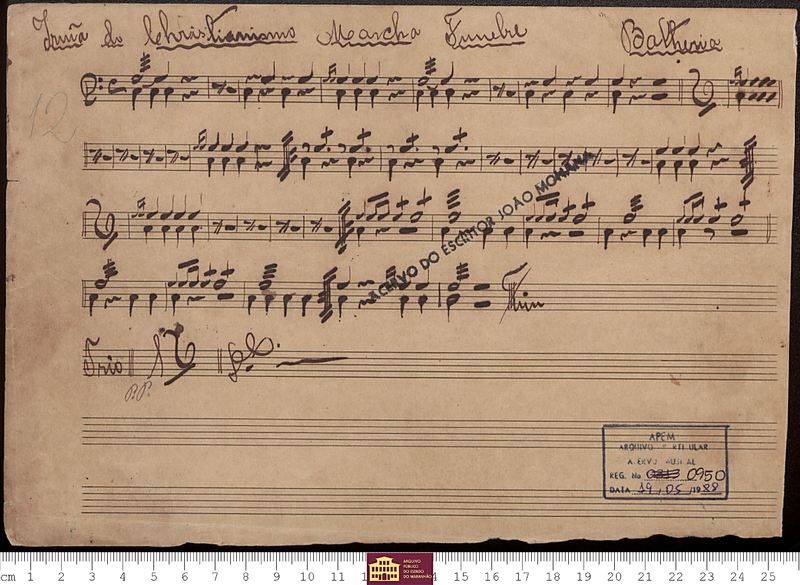 Irmã do Christianismo Marcha Funebre Batheria
12
ARCHIVO DO ESCRITOR JOÃO MOHANA
Fim
Trio
P.P.
D.C.
APEM
ARQUIVO P
ACERVO MUSICAL
REG. No 0950
DATA 19, 05, 1988
cm 1 2 3 4 5 6 7 8 9 10 11 15 16 17 18 19 20 21 22 23 24 25
ARQUIVO
PÚBLICO
DO ESTADO
DO MARANHÃO